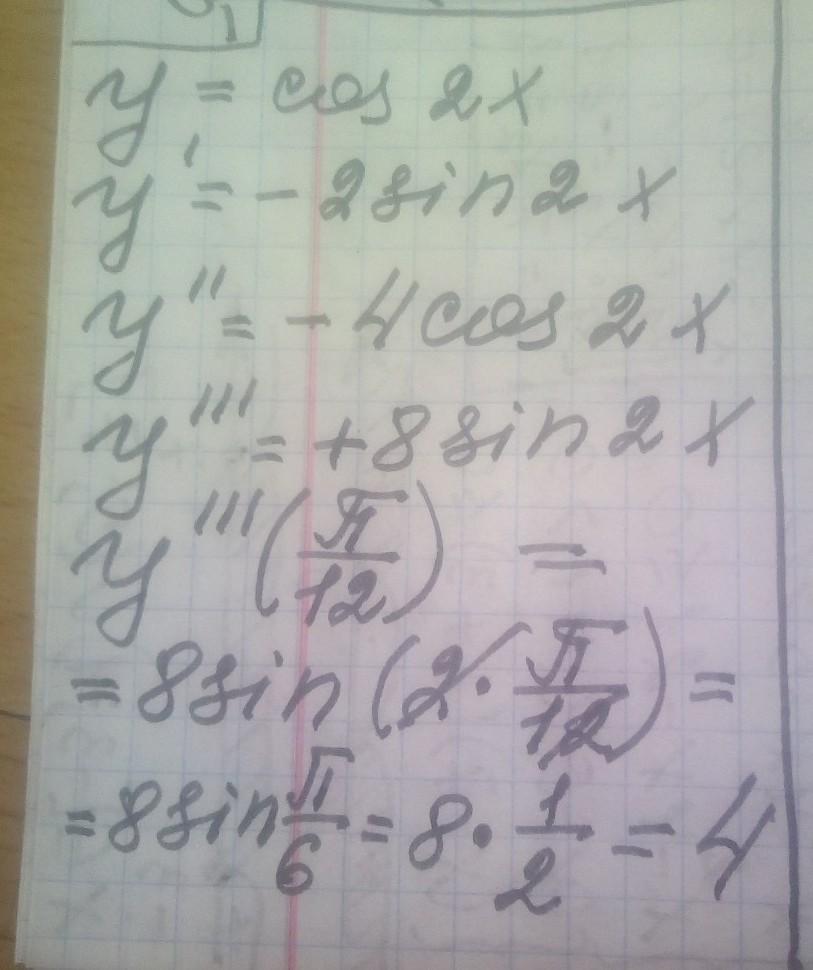 y = cos 2x
y' = - 2 sin 2 x
y'' = - 4 cos 2 x
y''' = + 8 sin 2 x
y''' (π/12) =
= 8 sin (2 · π/12) =
= 8 sin π/6 = 8 · 1/2 = 4